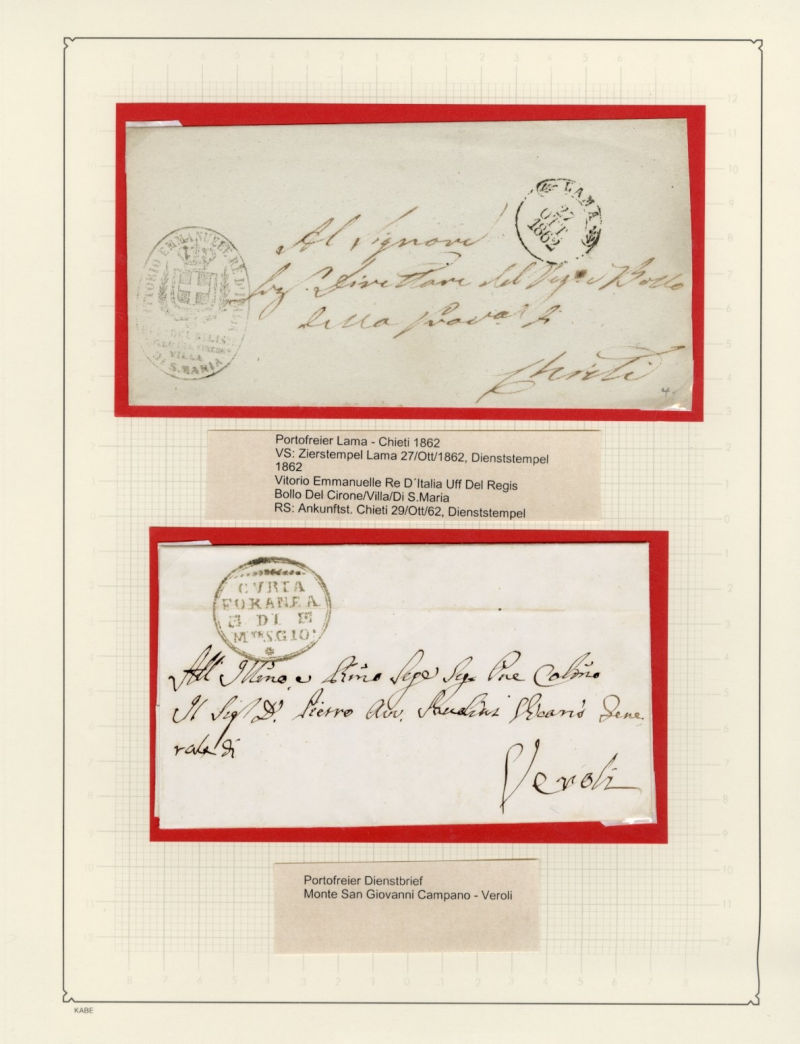 LAMA
27
OTT
1862
VITTORIO EMMANUELE RE D'ITALIA
VILLA
DI S. MARIA
Al Signore
Direttore del Bollo
Della
Chieti
4
Portofreier Lama - Chieti 1862
VS: Zierstempel Lama 27/Ott/1862, Dienststempel
1862
Vitorio Emmanuelle Re D´Italia Uff Del Regis
Bollo Del Cirone/Villa/Di S.Maria
RS: Ankunftst. Chieti 29/Ott/62, Dienststempel
CVRIA
FORANEA
DI
M.TE S.GIO:
All' Illmo, e Rmo Sigre Sigr Pne Colmo
Il Sigr D. Pietro Avv. Vicario Gene
rale di
Veroli
Portofreier Dienstbrief
Monte San Giovanni Campano - Veroli
KABE